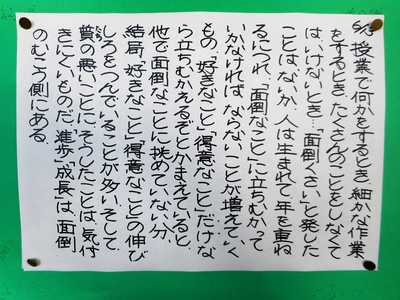 6/3 授業で何かをするとき、細かな作業
をするとき、たくさんのことをしなくて
はいけないとき…「面倒くさい」と発した
ことはないか、人は生まれて年を重ね
るにつれ、「面倒なこと」に立ちむかって
いかなければならないことが増えていく
もの。「好きなこと」「得意なこと」だけな
ら立ちむかえるぞとかまえていると、
他で面倒なことに挑めていない分、
結局「好きなこと」「得意なこと」の伸び
しろをつんでいることが多い。そして、
質の悪いことに、そうしたことは、気付
きにくいものだ。「進歩」「成長」は、面倒
のむこう側にある。